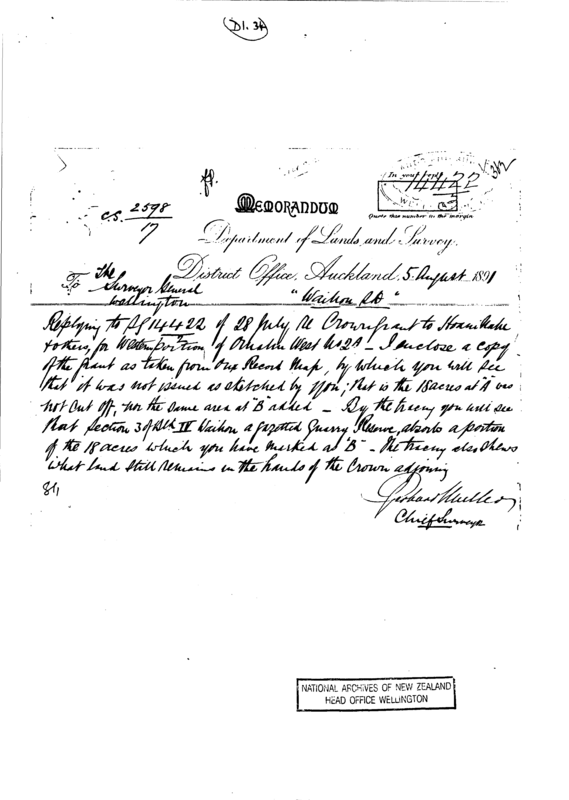 D1.34
MEMORANDUM
In your reply
14422
Quote this number in the margin
C.S. 2598
17
Department of Lands and Survey,
District Office, Auckland, 5 August 1891
To The
Surveyor General
Wellington
"Waihou S.D"
Replying to SG 14422 of 28 July, re Crown Grant to
& others, for Western Portion of West No 2A – I enclose a copy
of the grant as taken from our Record Map, by which you will see
that it was not issued as sketched by you; that is the 18 acres at "A" was
not cut off, nor the same area at "B" added – By the tracing you will see
that Section 3 of Blk IV Waihou a gazetted Quarry Reserve, absorbs a portion
of the 18 acres which you have marked at "B" – The tracing also shews
what land still remains in the hands of the Crown adjoining
Chief Surveyor
NATIONAL ARCHIVES OF NEW ZEALAND
HEAD OFFICE WELLINGTON